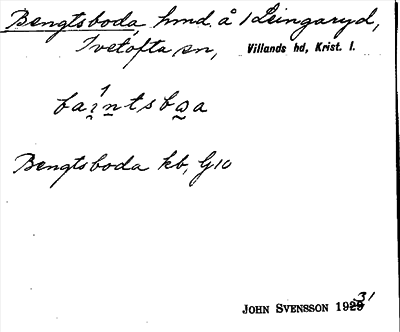 Bengtsboda, hmd. å 1 Leingaryd,
Ivetofta sn, Villands hd, Krist. l.
Bengtsboda kb, G10
JOHN SVENSSON 1931